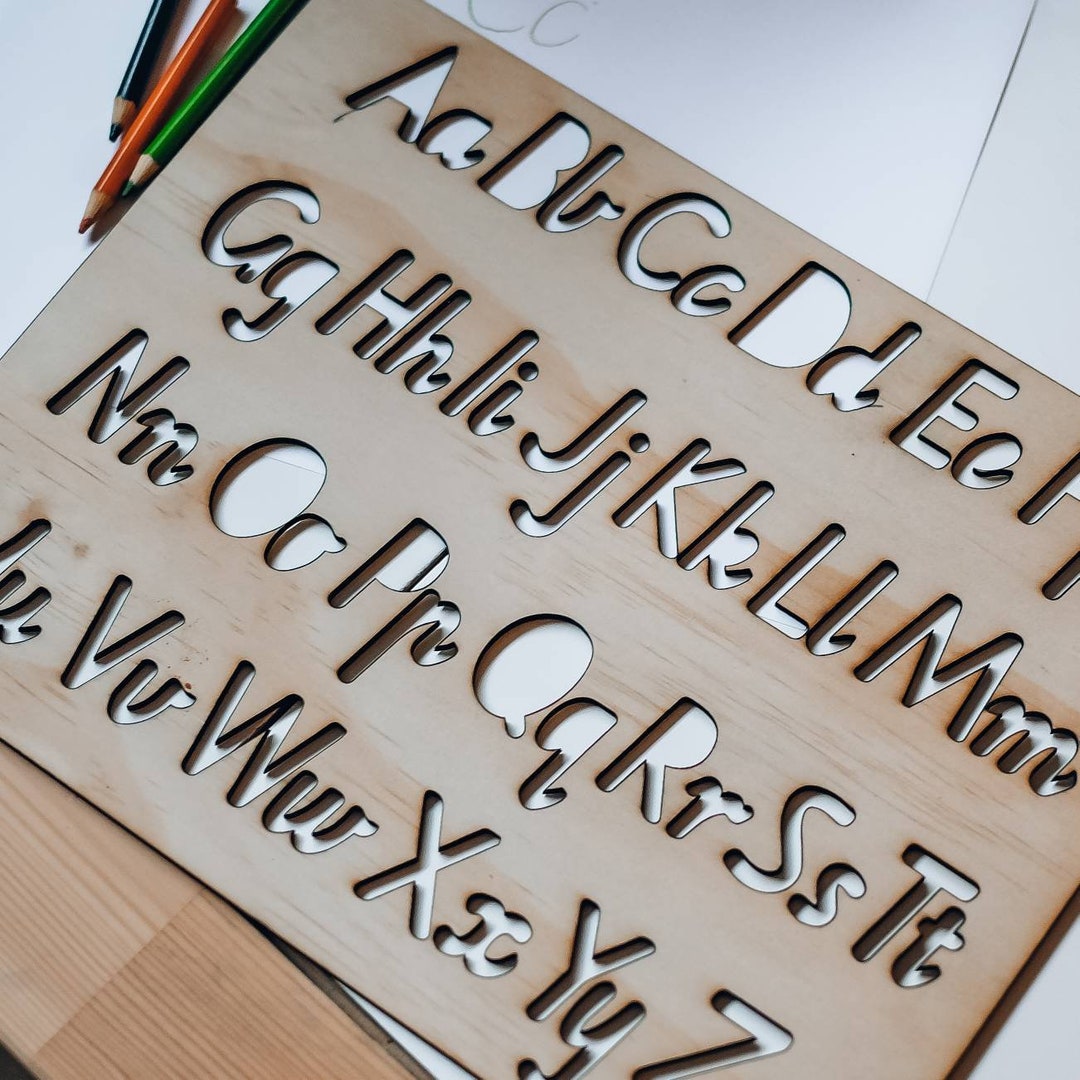 Cc
Aa Bb Cc Dd Ee F
Gg Hh Ii Jj Kk Ll Mm
Nn Oo Pp Qq Rr Ss Tt
u Vv Ww Xx Yy Z